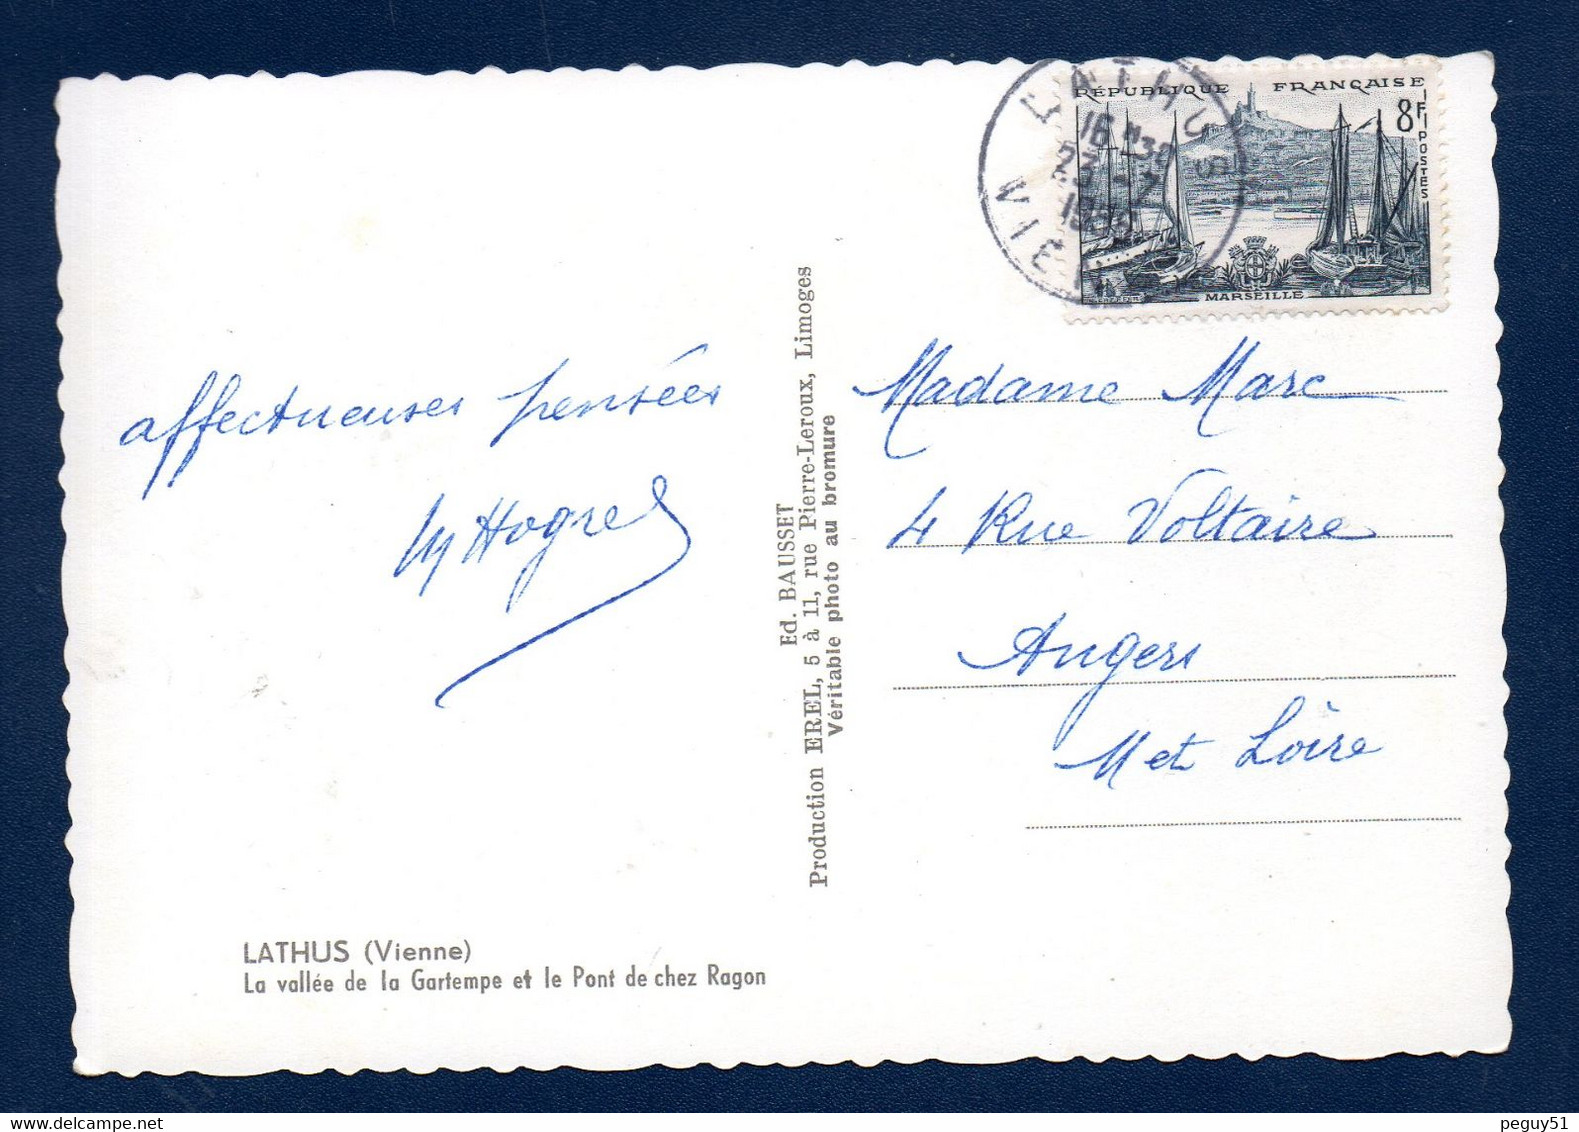 affectueuses pensées
LATHUS (Vienne)
La vallée de la Gartempe et le Pont de chez Ragon
Ed. BAUSSET
Production EREL, 5 à 11, rue Pierre-Leroux, Limoges
Véritable photo au bromure
LATHUS
16 H 30
23-7
VIENNE
RÉPUBLIQUE FRANÇAISE
8F
POSTES
MARSEILLE
Madame Marc
4 Rue Voltaire
Angers
M et Loire
peguy51